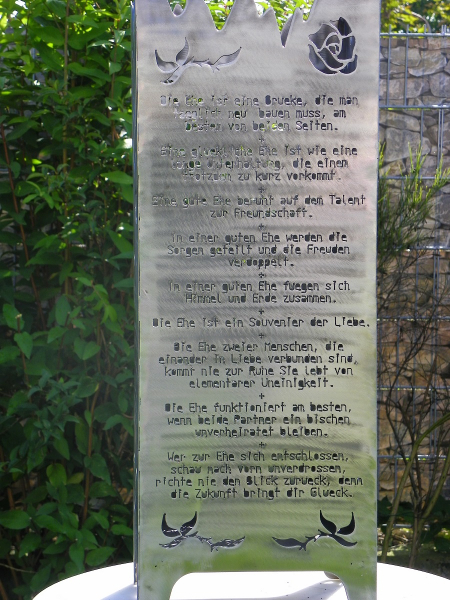 Die Ehe ist eine Bruecke, die man
taeglich neu bauen muss, am
besten von beiden Seiten.
+
Eine glueckliche Ehe ist wie eine
lange Unterhaltung, die einem
trotzdem zu kurz vorkommt.
+
Eine gute Ehe beruht auf dem Talent
zur Freundschaft.
+
In einer guten Ehe werden die
Sorgen geteilt und die Freuden
verdoppelt.
+
In einer guten Ehe fuegen sich
Himmel und Erde zusammen.
+
Die Ehe ist ein Souvenier der Liebe.
+
Die Ehe zweier Menschen, die
einander in Liebe verbunden sind,
kommt nie zur Ruhe Sie lebt von
elementarer Uneinigkeit.
+
Die Ehe funktioniert am besten,
wenn beide Partner ein bischen
unverheiratet bleiben.
+
Wer zur Ehe sich entschlossen,
schau nach vorn unverdrossen,
richte nie den Blick zurueck, denn
die Zukunft bringt dir Glueck.